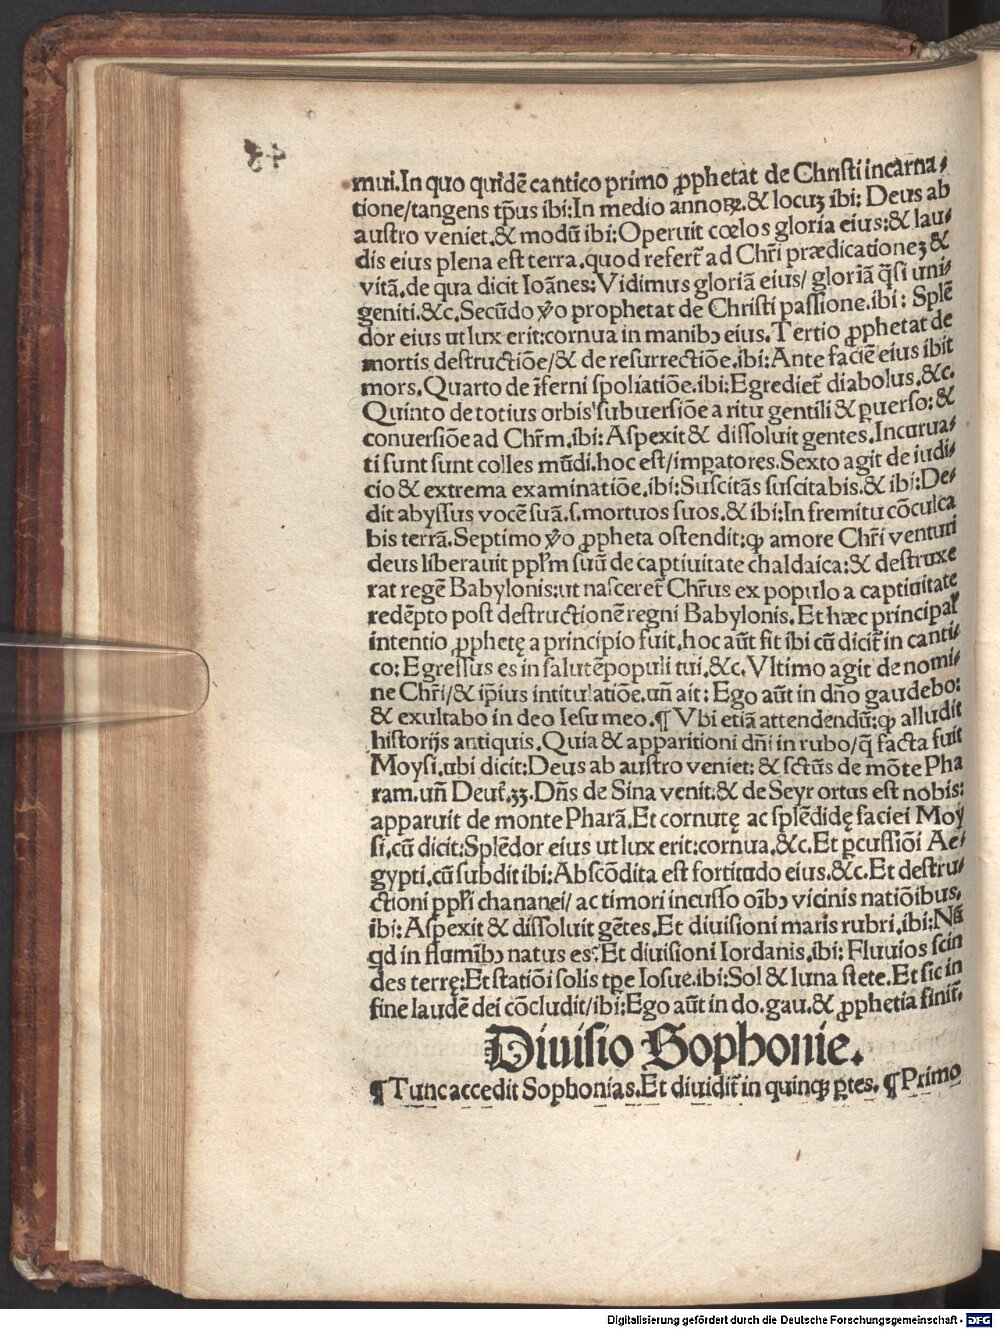 mui.In quo quidẽ cantico primo ꝓphetat de Christi incarna⸗
tione/tangens tp̃us ibi:In medio annoꝝ.& locuꝫ ibi: Deus ab
austro veniet.& modũ ibi:Operuit cœlos gloria eius:& lau⸗
dis eius plena est terra.quod refert̃ ad Chr̃i prædicationeꝫ &
vitã.de qua dicit Ioãnes:Vidimus gloriã eius/ gloriã q̃si uni⸗
geniti.&c.Secũdo ỹo prophetat de Christi passione.ibi: Splẽ
dor eius ut lux erit:cornua in manibꝰ eius.Tertio ꝓphetat de
mortis destructiõe/& de resurrectiõe.ibi:Ante faciẽ eius ibit
mors.Quarto de ĩferni spoliatiõe.ibi:Egrediet̃ diabolus.&c.
Quinto de totius orbis subuersiõe a ritu gentili & ꝑuerso:&
conuersiõe ad Chr̃m.ibi:Aspexit & dissoluit gentes.Incurua⸗
ti sunt sunt colles mũdi.hoc est/imꝑatores.Sexto agit de iudi⸗
cio & extrema examinatiõe.ibi:Suscitãs suscitabis.& ibi:De⸗
dit abyssus vocẽ suã.s.mortuos suos.& ibi:In fremitu cõculca
bis terrã.Septimo ỹo ꝓpheta ostendit:ꝙ amore Chr̃i venturi
deus liberauit ppl̃m suũ de captiuitate chaldaica:& destruxe
rat regẽ Babylonis:ut nasceret̃ Chr̃us ex populo a captiuitate
redẽpto post destructionẽ regni Babylonis.Et hæc principal̃
intentio ꝓphetę a principio fuit.hoc aũt fit ibi cũ dicit̃ in canti⸗
co:Egressus es in salutẽ populi tui.&c.Vltimo agit de nomi⸗
ne Chr̃i/& ip̃ius intitulatiõe.uñ ait: Ego aũt in dño gaudebo:
& exultabo in deo Iesu meo.¶Vbi etiã attendendũ:ꝙ alludit
historijs antiquis.Quia & apparitioni dñi in rubo/q̃ facta fuit
Moysi.ubi dicit:Deus ab austro veniet: & sctũs de mõte Pha
ram.uñ Deut̃.33.Dñs de Sina venit.& de Seyr ortus est nobis:
apparuit de monte Pharã.Et cornutę ac splẽdidę faciei Moy
si.cũ dicit:Splẽdor eius ut lux erit:cornua.&c.Et ꝑcussiõi Ae⸗
gypti.cũ subdit ibi:Abscõdita est fortitudo eius.&c.Et destru⸗
ctioni ppl̃i chananei/ ac timori incusso oĩbꝰ vicinis natiõibus.
ibi:Aspexit & dissoluit gẽtes.Et diuisioni maris rubri.ibi:Nũ
qd in flumĩbꝰ natus es?Et diuisioni Iordanis.ibi: Fluuios scin
des terrę:Et statiõi solis tꝑe Iosue.ibi:Sol & luna stete.Et sic in
fine laudẽ dei cõcludit/ibi:Ego aũt in do.gau.& ꝓphetia finit̃.
Diuisio Sophonie.
¶Tunc accedit Sophonias.Et diuidit̃ in quinqꝫ ꝑtes. ¶Primo
Digitalisierung gefördert durch die Deutsche Forschungsgemeinschaft - DFG